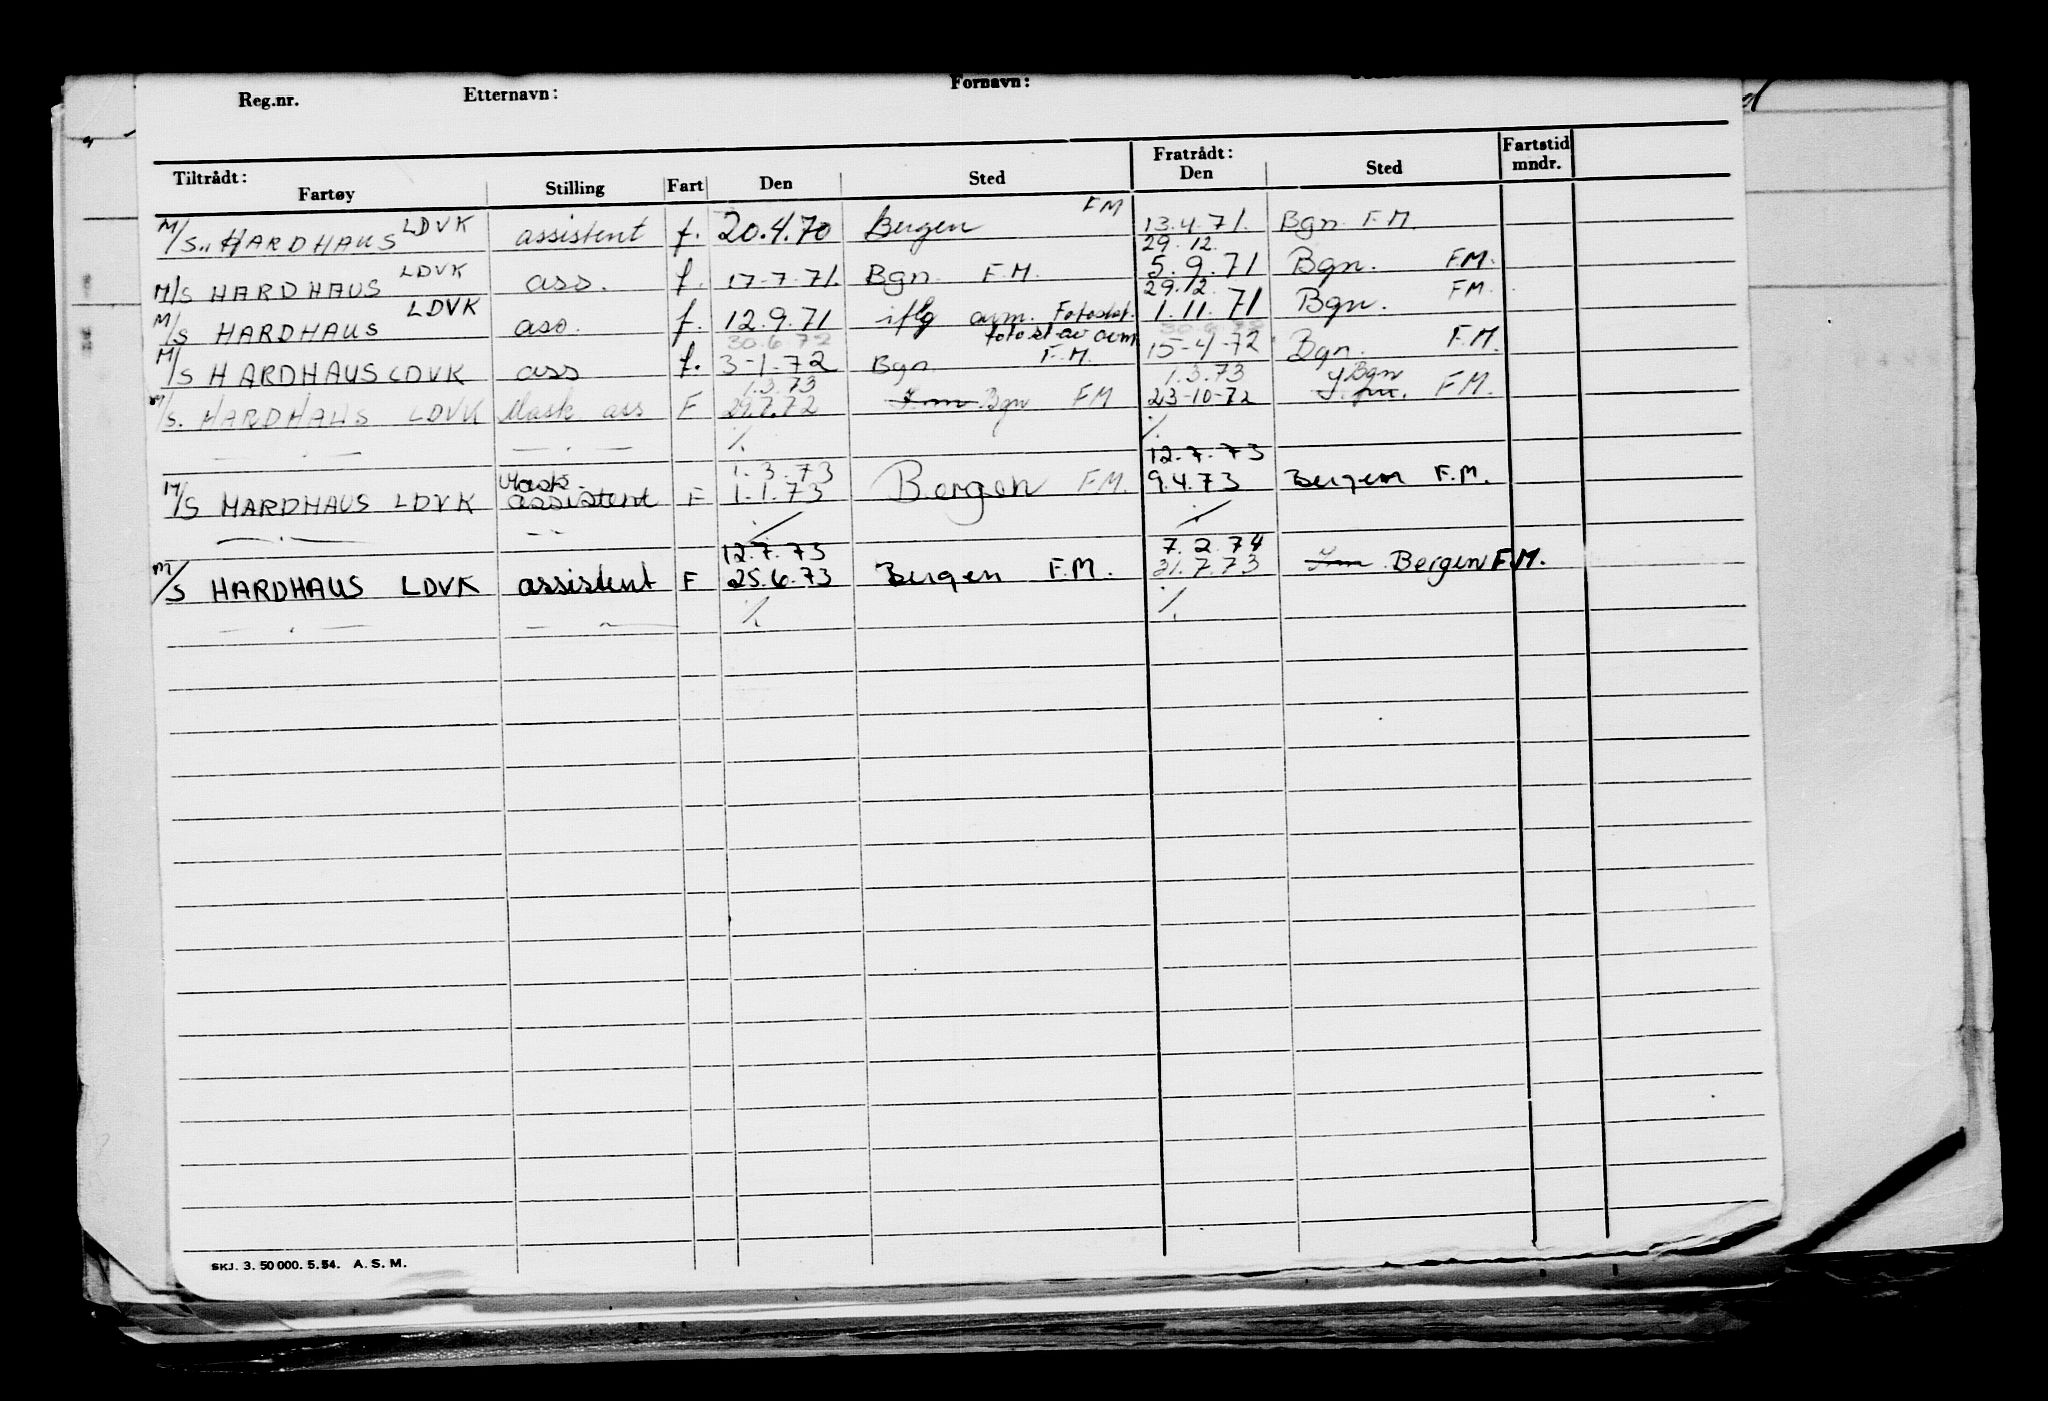 Reg.nr. Etternavn: Fornavn:
Tiltrådt: Fratrådt: Fartstid
Fartøy Stilling Fart Den Sted Den Sted mndr.
M/S „HARDHAUS LDVK assistent f. 20.4.70 Bergen FM 13.4.71. Bgn F.M.
29.12.
M/S HARDHAUS LDVK ass. f. 17.7.71. Bgn. F.M. 5.9.71 Bgn. F.M.
29.12.
M/S HARDHAUS LDVK ass. f. 12.9.71 iflg avm. Fotostat. 1.11.71 Bgn. F.M.
30.6.72 fotost av avm 30.6.72
M/S HARDHAUS LDVK ass f. 3-1.72 Bgn F.M. 15-4-72 Bgn. F.M.
1.3.73 1.3.73 Bgn
M/S. HARDHAUS LDVK Mask ass F 29.7.72 Bgn FM 23-10-72 F.M.
— . — — . — ./. ./.
Mask. 1.3.73 12.7.73
M/S HARDHAUS LDVK assistent F 1.1.73 Bergen F.M. 9.4.73 Bergen F.M.
— . — — — ./. ./.
12.7.73 7.2.74
M/S HARDHAUS LDVK assistent F 25.6.73 Bergen F.M. 31.7.73 Bergen F.M.
— . — — — ./. ./.
SKJ. 3. 50 000. 5.54. A. S. M.